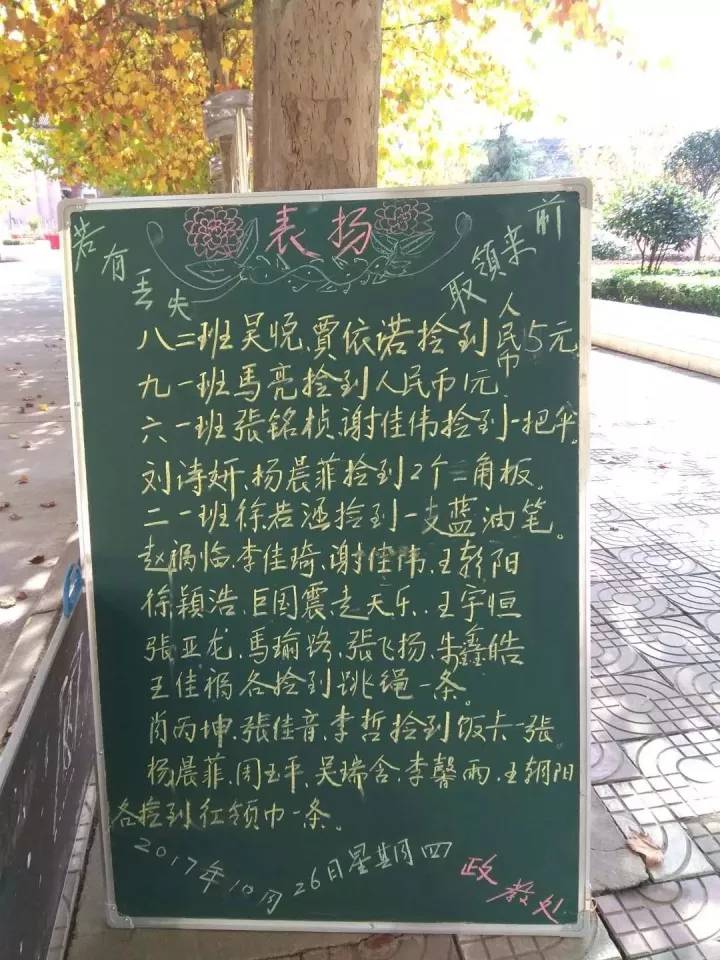 表扬
若有丢失
前来领取
八二班吴悦.贾依诺捡到人民币5元.
九一班馬亮捡到人民币1元.
六一班張铭桢.谢佳伟捡到一把伞.
刘诗妍.杨晨菲捡到2个三角板.
二一班徐若涵捡到一支蓝油笔。
赵福临.李佳琦.谢佳伟.王朝阳
徐颖浩.巨国震走天乐.王宇恒
張亚龙.馬瑜路.張飞扬.朱鑫皓
王佳福各捡到跳绳一条。
肖丙坤.張佳音.李哲捡到饭卡一張.
杨晨菲.周玉平.吴瑞含.李馨雨.王朝阳
各捡到红领巾一条。
2017年10月26日星期四
政教处